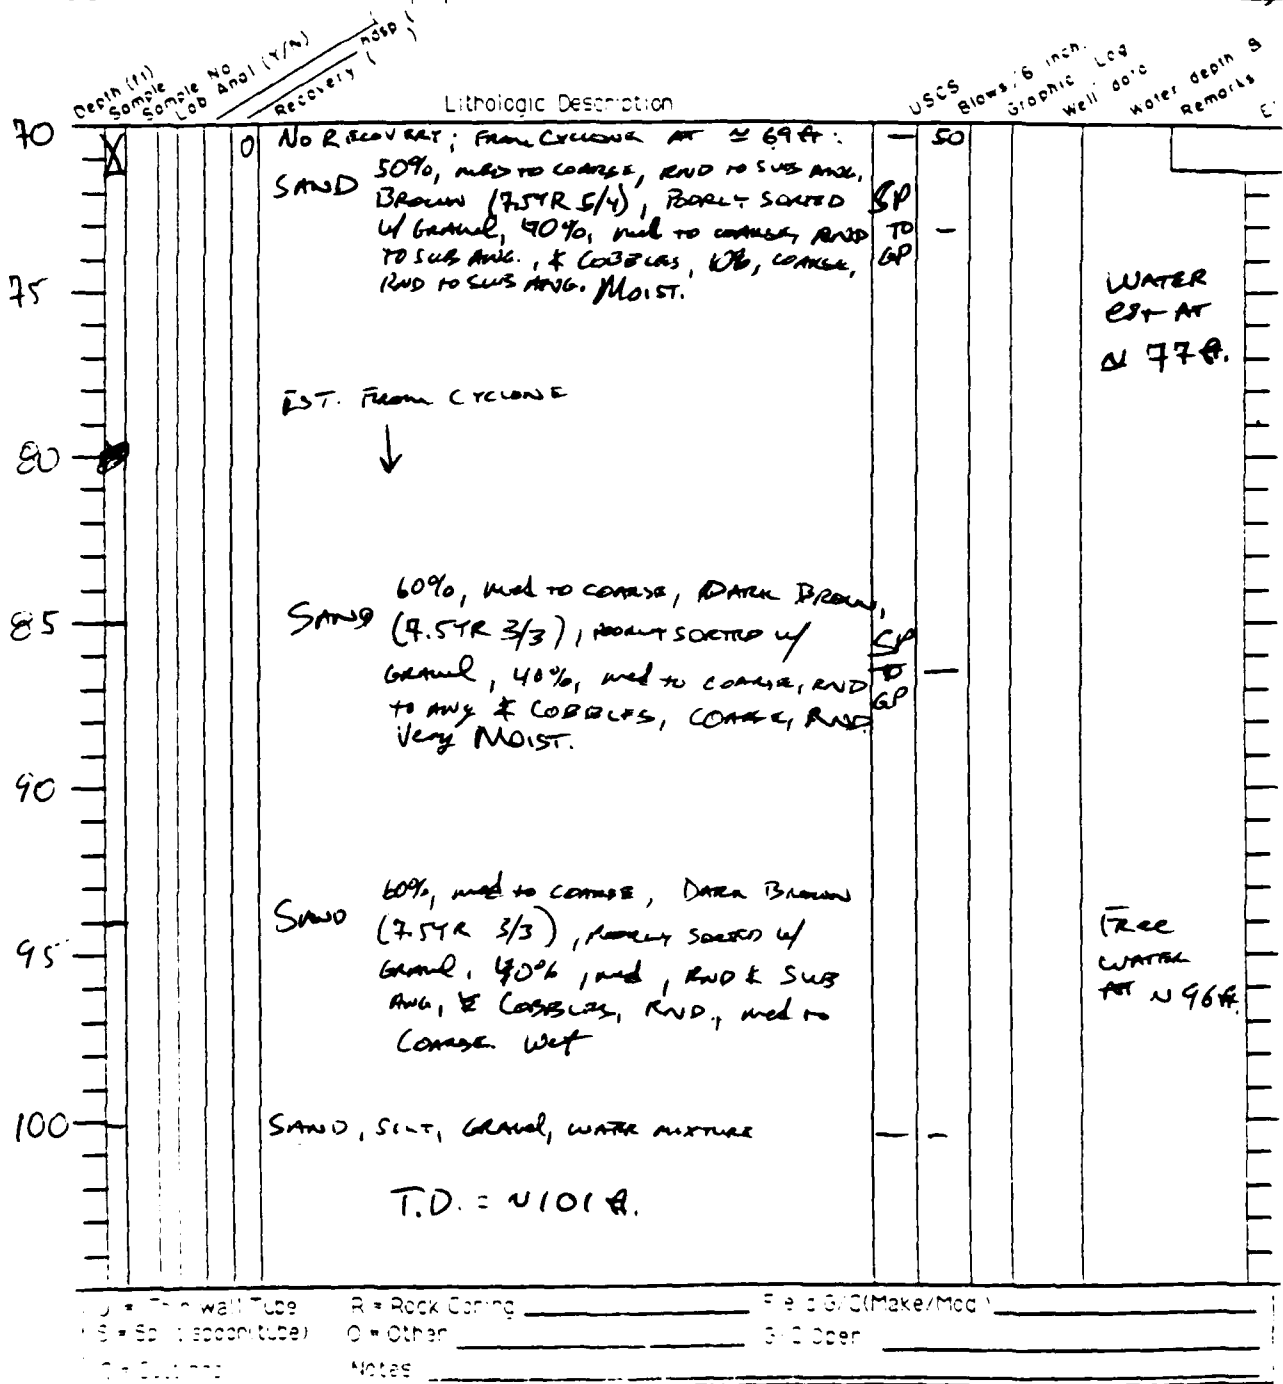 Depth (ft)
Sample
Sample No
Lab Anal (Y/N)
Recovery ( )
Lithologic Description
USCS
Blows/6 inch.
Graphic Log
Well data
Water depth &
Remarks
70
0 NO RECOVERY; FROM CYCLONE AT ≃ 69 ft: — 50
SAND 50%, MED TO COARSE, RND TO SUB ANG,
BROWN (7.5YR 5/4), POORLY SORTED SP
W/ GRAVEL, 40%, med to COARSE, RND TO —
TO SUB ANG., & COBBLES, 10%, COARSE, GP
RND TO SUB ANG. MOIST.
75
WATER
est AT
~ 77 ft.
EST. FROM CYCLONE
↓
80
60%, med to COARSE, DARK BROWN,
85 SAND (7.5YR 3/3), POORLY SORTED w/ SP
GRAVEL, 40%, med to COARSE, RND TO —
to ANG & COBBLES, COARSE, RND GP
Very MOIST.
90
60%, med to COARSE, DARK BROWN
SAND (7.5YR 3/3), POORLY SORTED w/ Free
95 GRAVEL, 40%, med, RND & SUB WATER
ANG, & COBBLES, RND., med to AT ~ 96 ft.
COARSE Wet
100 SAND, SILT, GRAVEL, WATER MIXTURE — —
T.D. = ~101 ft.
wall Tube R = Rock Coring (Make/Mod )
O = Other
Notes